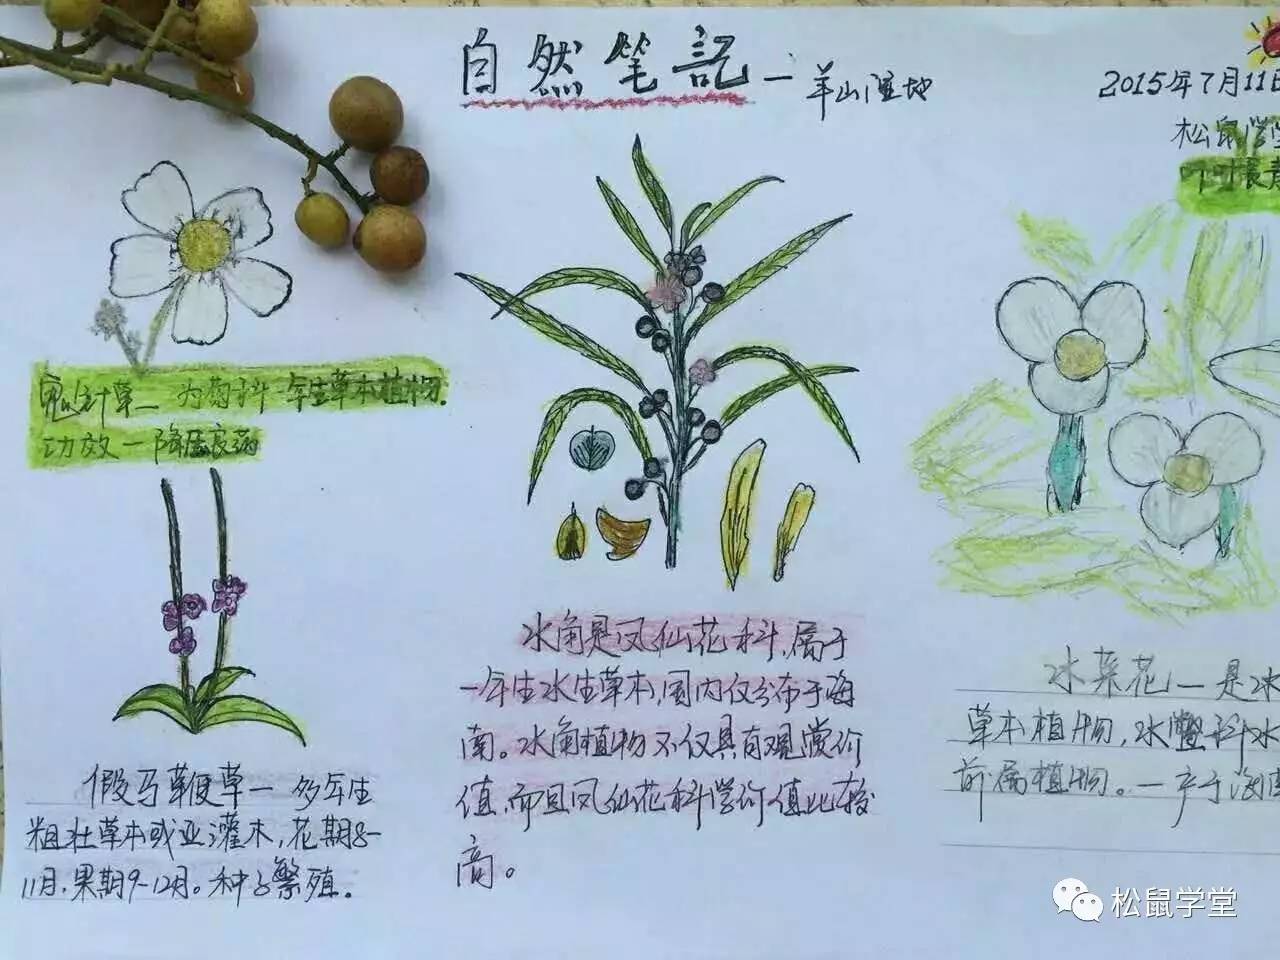 自然笔記一羊山湿地
2015年7月11日
松鼠学堂
叶叶长青
鬼针草— 为菊科一年生草本植物.
功效—降压良药
假马鞭草— 多年生
粗壮草本或亚灌木,花期8-
11月.果期9-12月。种子繁殖.
水角是凤仙花科,属于
一年生水生草本,国内仅分布于海
南。水角植物不仅具有观赏价
值,而且凤仙花科学价值比较
高。
水菜花—是水
草本植物,水鳖科水
前属植物。—产于海南
松鼠学堂